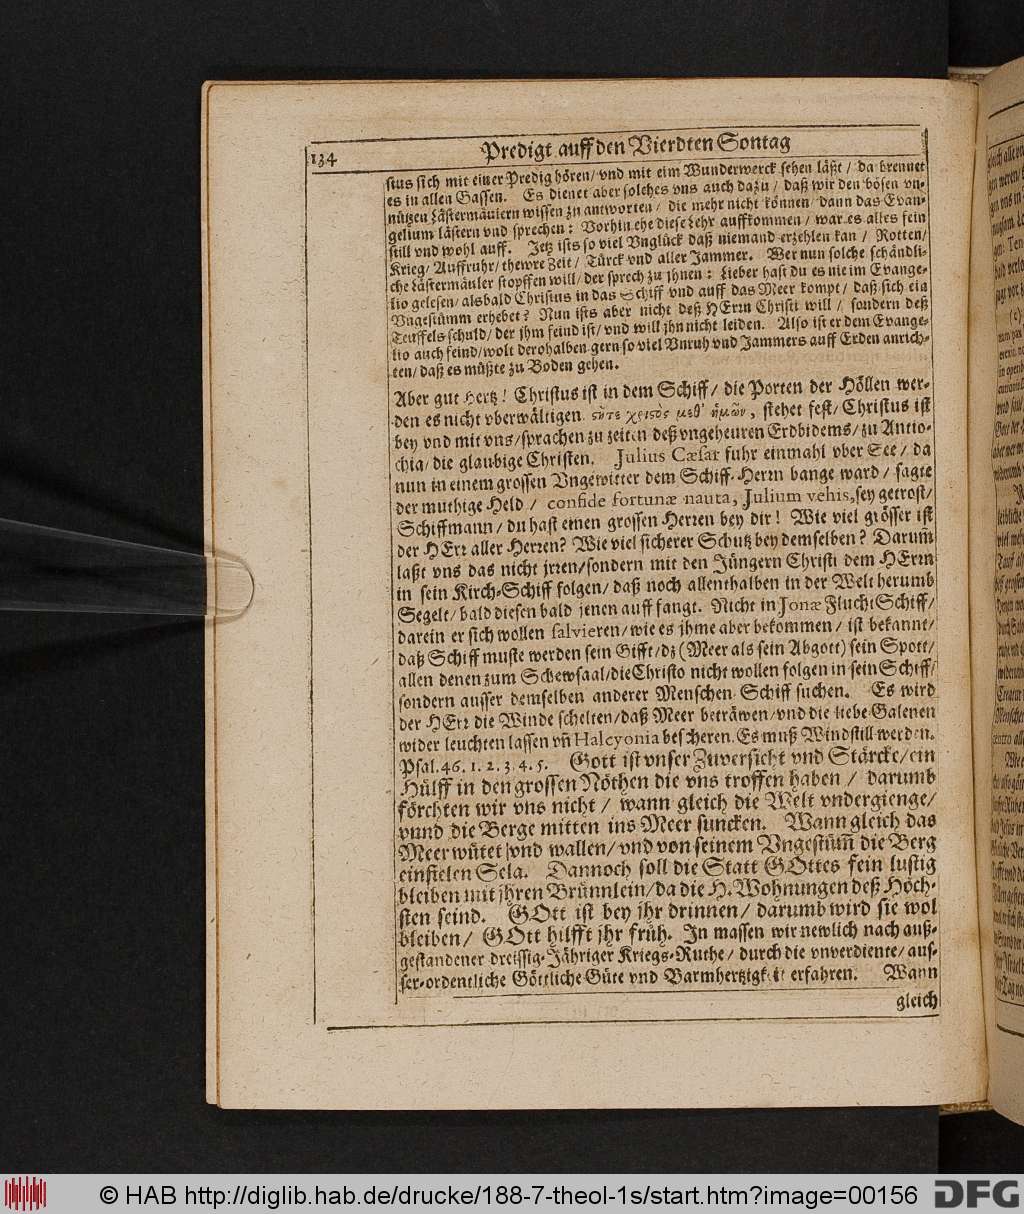 134 Predigt auff den Vierdten Sontag
stus sich mit einer Predig hören/ vnd mit eim Wunderwerck sehen läßt/ da brennet
es in allen Gassen. Es dienet aber solches vns auch dazu/ daß wir den bösen vn-
nützen Lästermäulern wissen zu antworten/ die mehr nicht können/ dann das Evan-
gelium lästern vnd sprechen: Vorhin ehe diese Lehr auffkommen/ war es alles fein
still vnd wohl auff. Jetz ists so viel Vnglück daß niemand erzehlen kan/ Rotten/
Krieg/ Auffruhr/ thewre Zeit/ Türck vnd aller Jammer. Wer nun solche schändli-
che Lästermäuler stopffen will/ der sprech zu jhnen: Lieber hast du es nie im Evange-
lio gelesen/ alsbald Christus in das Schiff vnd auff das Meer kompt/ daß sich ein
Vngestümm erhebet? Nun ists aber nicht deß HErrn Christi will/ sondern deß
Teuffels schuld/ der jhm feind ist/ vnd will jhn nicht leiden. Also ist er dem Evange-
lio auch feind/ wolt derohalben gern so viel Vnruh vnd Jammers auff Erden anrich-
ten/ daß es müßte zu Boden gehen.
Aber gut Hertz! Christus ist in dem Schiff/ die Porten der Höllen wer-
den es nicht vberwältigen. οὗτε χριςὸς μεθ' ἡμῶν, stehet fest/ Christus ist
bey vnd mit vns/ sprachen zu zeiten deß vngeheuren Erdbidems/ zu Antio-
chia/ die glaubige Christen. Julius Cæsar fuhr einmahl vber See/ da
nun in einem grossen Vngewitter dem Schiff-Herrn bange ward/ sagte
der muthige Held/ confide fortunæ nauta, Julium vehis, sey getrost/
Schiffmann/ du hast einen grossen Herren bey dir! Wie viel grösser ist
der HErr aller Herren? Wie viel sicherer Schutz bey demselben? Darum̃
laßt vns das nicht jrren/ sondern mit den Jüngern Christi dem HErrn
in sein Kirch-Schiff folgen/ daß noch allenthalben in der Welt herumb
Segelt/ bald diesen bald jenen auff fangt. Nicht in Jonæ Flucht Schiff/
darein er sich wollen salvieren/ wie es jhme aber bekommen/ ist bekannt/
daß Schiff muste werden sein Gifft/ dz (Meer als sein Abgott) sein Spott/
allen denen zum Schewsaal/ die Christo nicht wollen folgen in sein Schiff/
sondern ausser demselben anderer Menschen Schiff suchen. Es wird
der HErr die Winde schelten/ daß Meer beträwen/ vnd die liebe Galenen
wider leuchten lassen vñ Halcyonia bescheren. Es muß Windstill werden.
Psal. 46. 1. 2. 3. 4. 5. Gott ist vnser Zuversicht vnd Stärcke/ ein
Hülff in den grossen Nöthen die vns troffen haben/ darumb
förchten wir vns nicht/ wann gleich die Welt vndergienge/
vnnd die Berge mitten ins Meer suncken. Wann gleich das
Meer wütet vnd wallen/ vnd von seinem Vngestüm̃ die Berg
einfielen Sela. Dannoch soll die Statt GOttes fein lustig
bleiben mit jhren Brünnlein/ da die H. Wohnungen deß Höch-
sten seind. GOtt ist bey jhr drinnen/ darumb wird sie wol
bleiben/ GOtt hilfft jhr früh. In massen wir newlich nach auß-
gestandener dreissig-Jähriger Kriegs-Ruthe/ durch die vnverdiente/ aus-
ser-ordentliche Göttliche Güte vnd Barmhertzigkeit erfahren. Wann
gleich
© HAB http://diglib.hab.de/drucke/188-7-theol-1s/start.htm?image=00156
DFG